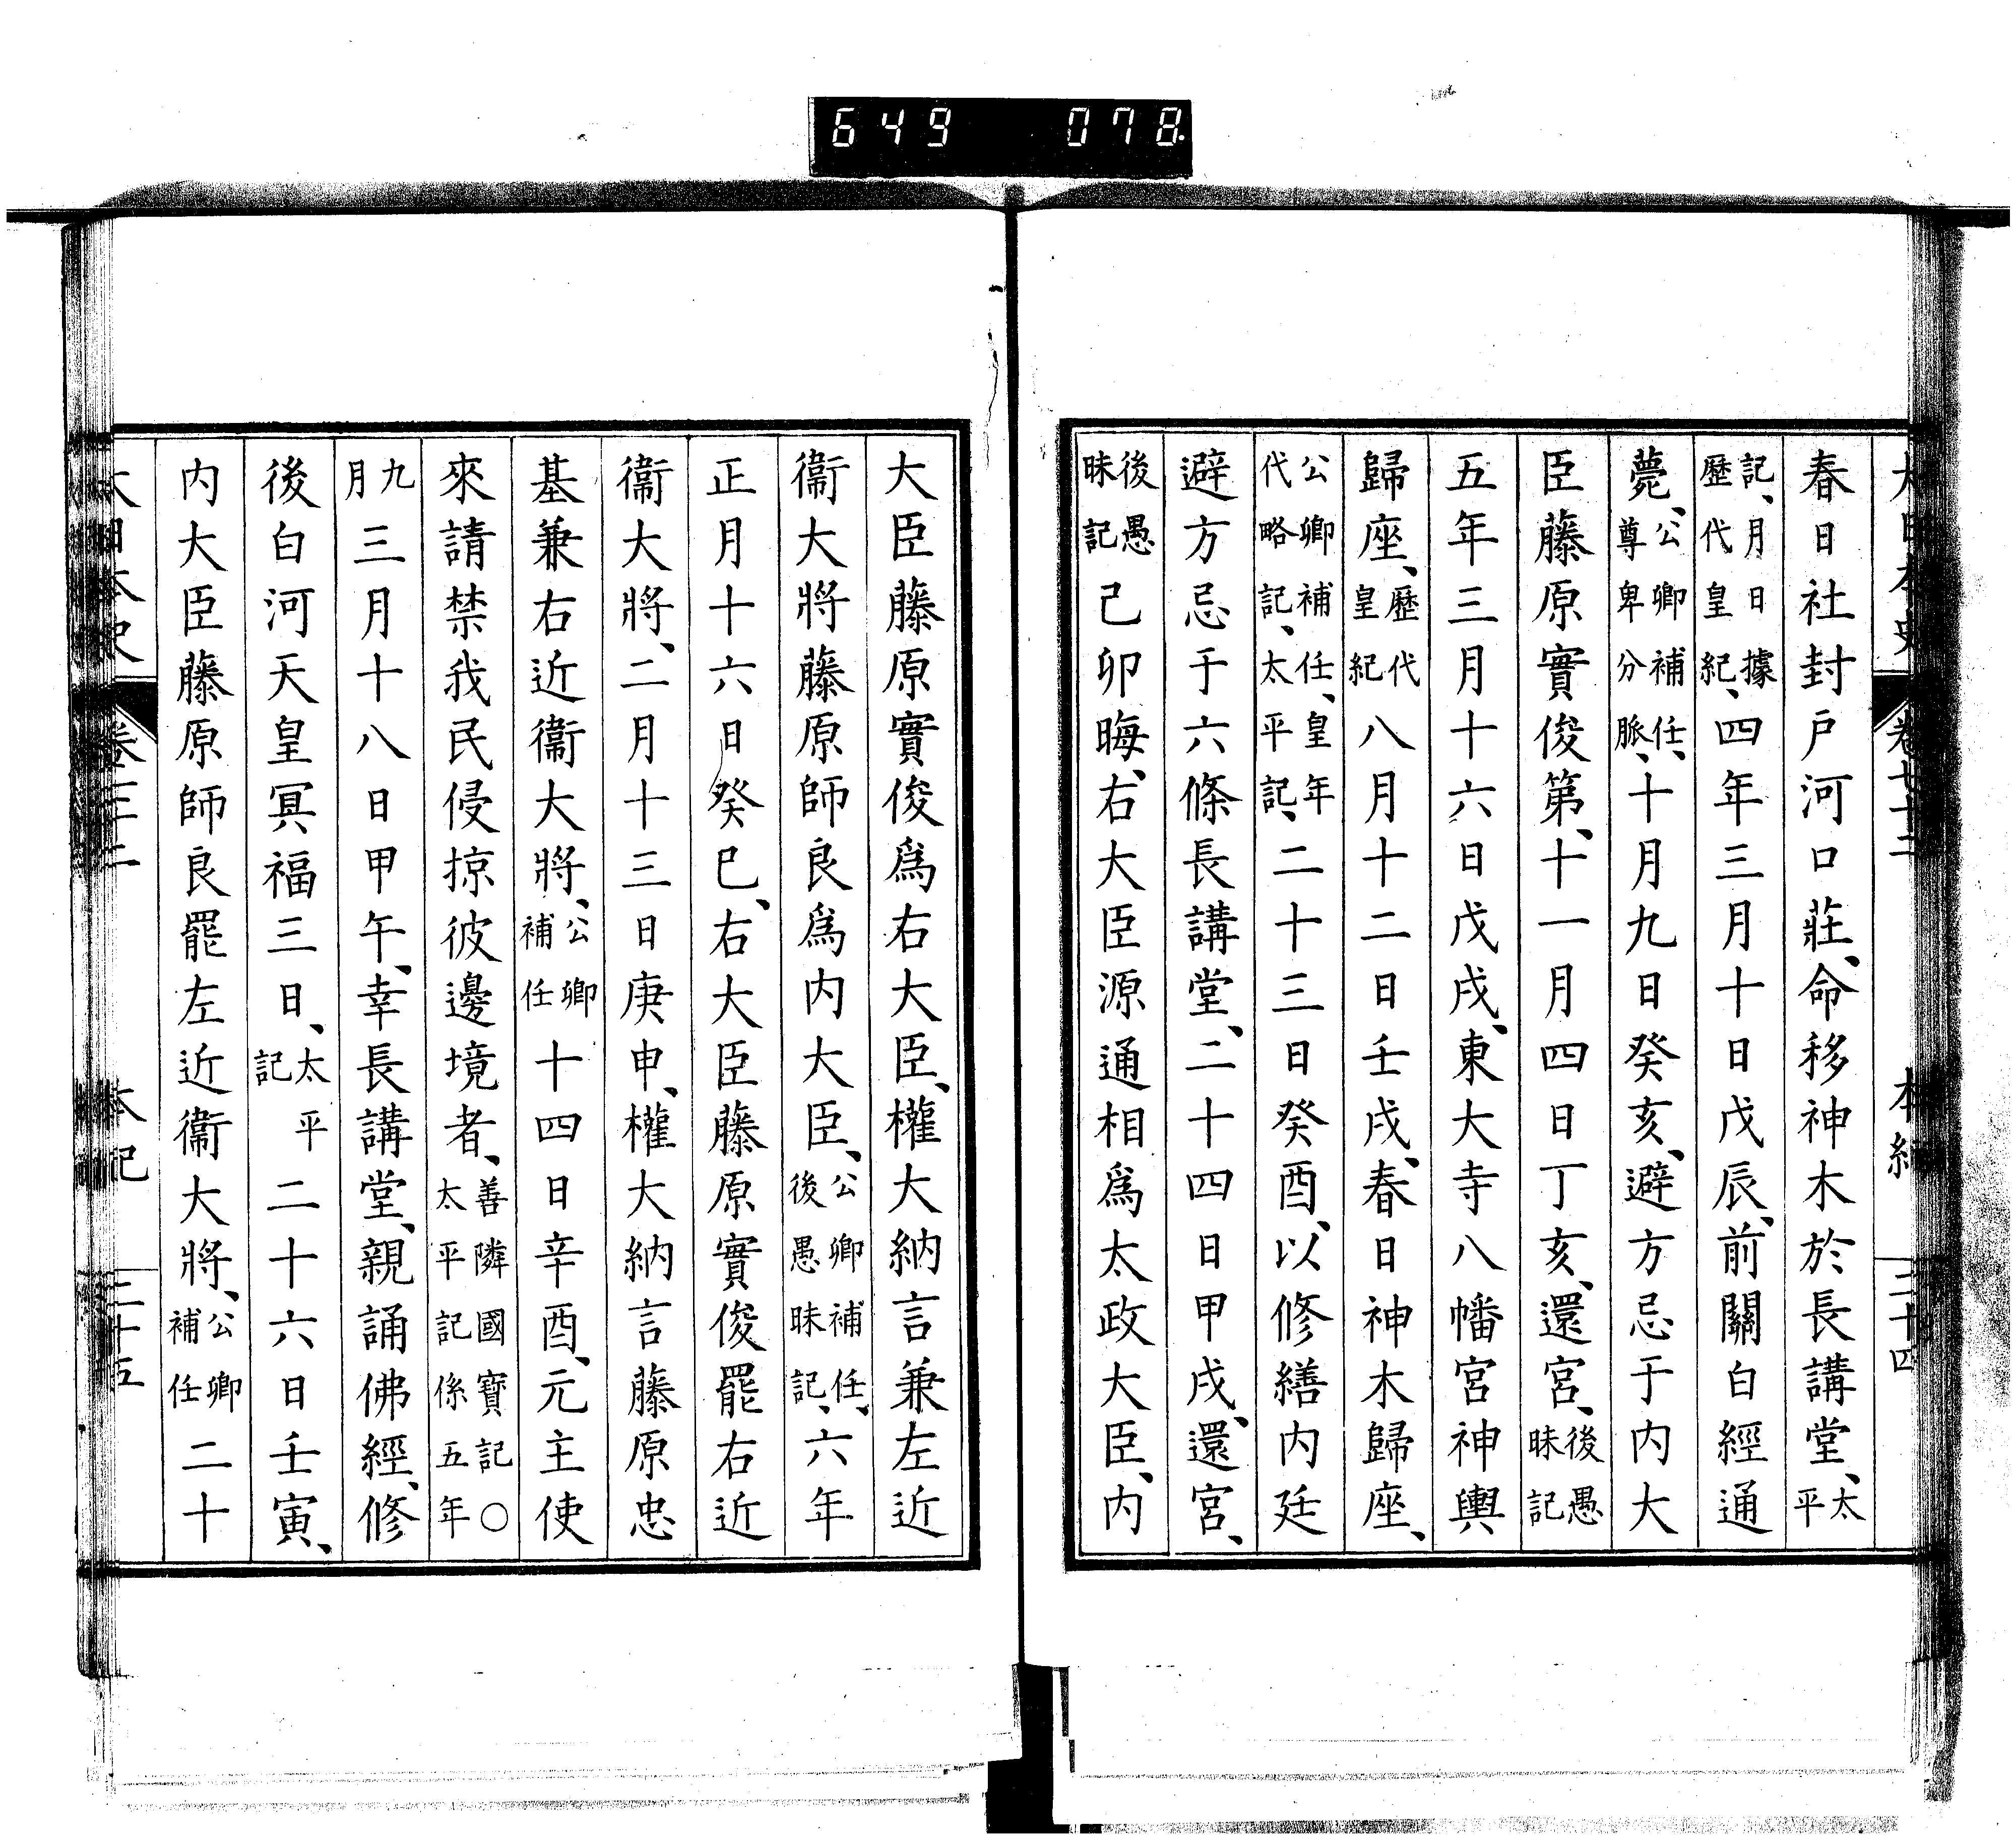 649 078
大日本史 卷七十二 本紀 三十四
春日社封戶河口莊、命移神木於長講堂、太平
記、月日據歷代皇紀、四年三月十日戊辰、前關白經通
薨、公卿補任、尊卑分脈、十月九日癸亥、避方忌于内大
臣藤原實俊第、十一月四日丁亥、還宮、後愚昧記
五年三月十六日戊戌、東大寺八幡宮神輿
歸座、歷代皇紀八月十二日壬戌、春日神木歸座、
公卿補任、皇年代略記、太平記、二十三日癸酉、以修繕内廷
避方忌于六條長講堂、二十四日甲戌、還宮、
後愚昧記己卯晦、右大臣源通相爲太政大臣、内
大臣藤原實俊爲右大臣、權大納言兼左近
衞大將藤原師良爲内大臣、公卿補任、後愚昧記、六年
正月十六日癸巳、右大臣藤原實俊罷右近
衞大將、二月十三日庚申、權大納言藤原忠
基兼右近衞大將、公卿補任十四日辛酉、元主使
來請禁我民侵掠彼邊境者、善隣國寶記○太平記係五年
九月三月十八日甲午、幸長講堂、親誦佛經、修
後白河天皇冥福三日、太平記二十六日壬寅、
内大臣藤原師良罷左近衞大將、公卿補任二十
本紀 三十五